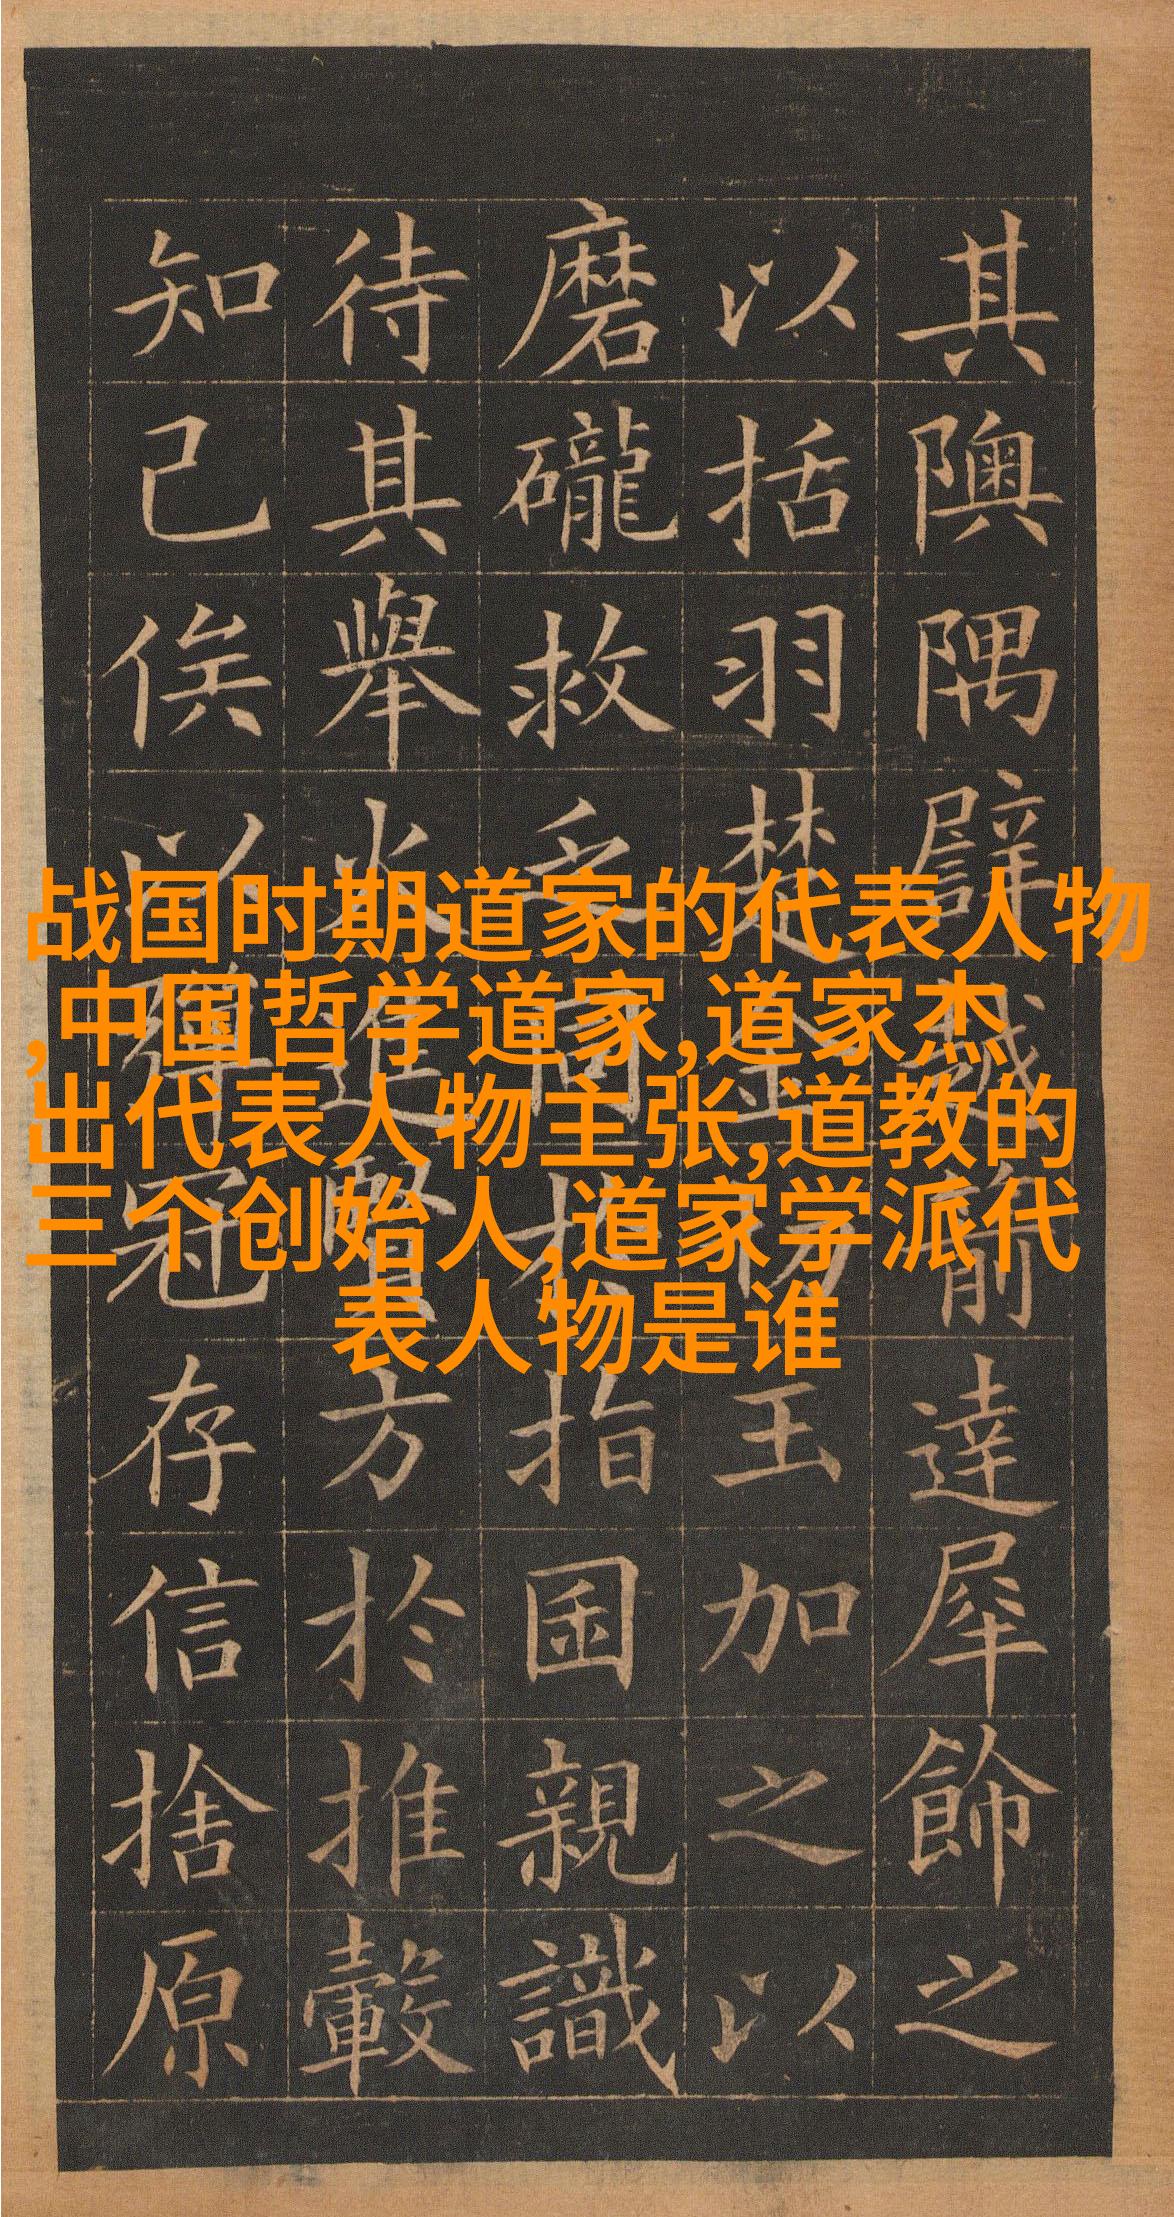 战国时期道家的代表人物
,中国哲学道家,道家杰
出代表人物主张,道教的
三个创始人,道家学派代
表人物是谁
其隩隅譬越箭達犀飾之
以括羽楚金切玉加之以
磨礲救乏同於指囷親識
待其舉火進賢方於推轂
知己俟以彈冠存信捨原